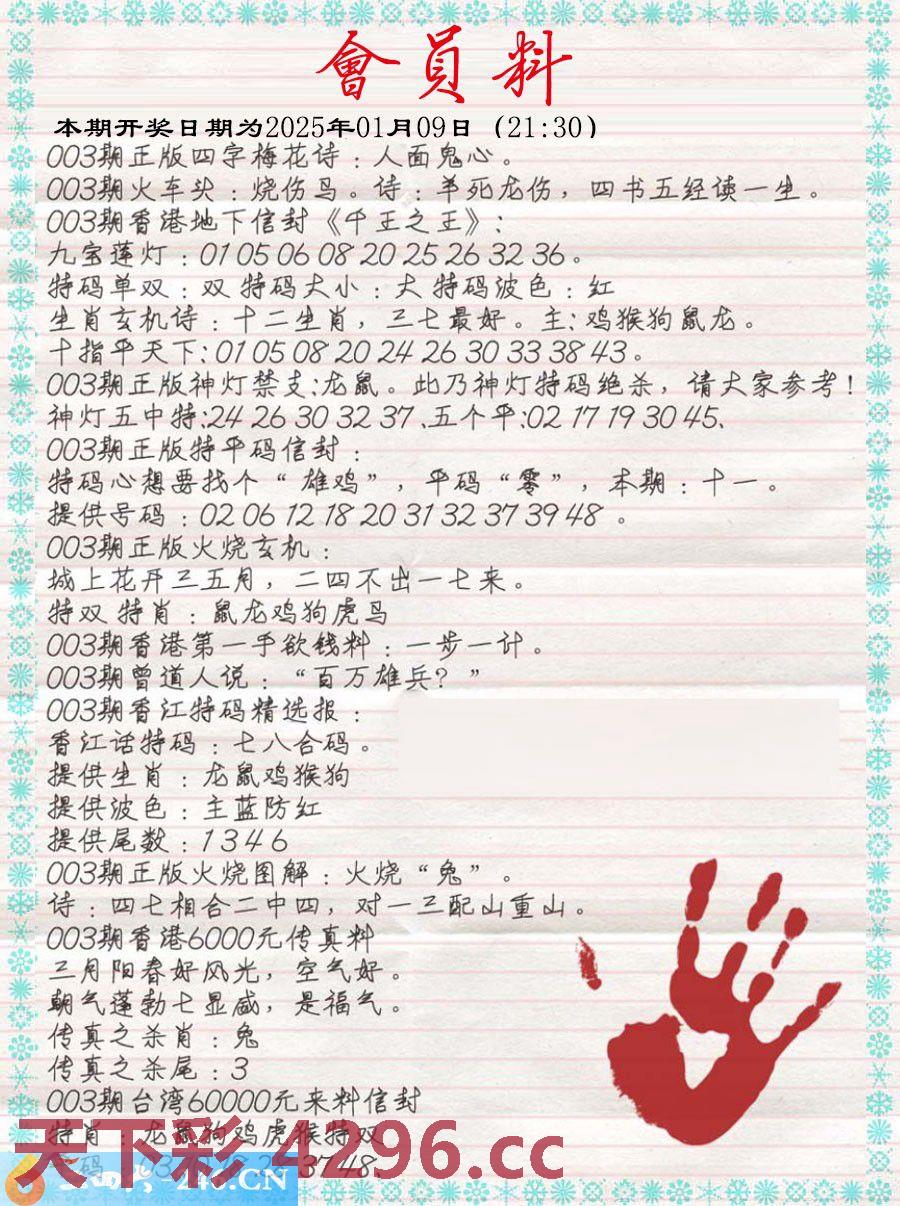 會員料
本期开奖日期为2025年01月09日（21:30）
003期正版四字梅花诗：人面鬼心。
003期火车头：烧伤鸟。诗：羊死龙伤，四书五经读一生。
003期香港地下信封《千王之王》：
九宝莲灯：01 05 06 08 20 25 26 32 36。
特码单双：双 特码大小：大 特码波色：红
生肖玄机诗：十二生肖，三七最好。主：鸡猴狗鼠龙。
十指平天下：01 05 08 20 24 26 30 33 38 43。
003期正版神灯禁支：龙鼠。此乃神灯特码绝杀，请大家参考！
神灯五中特：24 26 30 32 37、五个平：02 17 19 30 45、
003期正版特平码信封：
特码心想要找个“雄鸡”，平码“零”，本期：十一。
提供号码：02 06 12 18 20 31 32 37 39 48 。
003期正版火烧玄机：
城上花开三五月，二四不出一七来。
特双 特肖：鼠龙鸡狗虎鸟
003期香港第一手欲钱料：一步一计。
003期曾道人说：“百万雄兵？”
003期香江特码精选报：
香江话特码：七八合码。
提供生肖：龙鼠鸡猴狗
提供波色：主蓝防红
提供尾数：1 3 4 6
003期正版火烧图解：火烧“兔”。
诗：四七相合二中四，对一三配山重山。
003期香港6000元传真料
三月阳春好风光，空气好。
朝气蓬勃七显威，是福气。
传真之杀肖：兔
传真之杀尾：3
003期台湾60000元来料信封
特肖：龙鼠狗鸡虎猴特双
天下彩 4296.cc
37 48、
246.CN